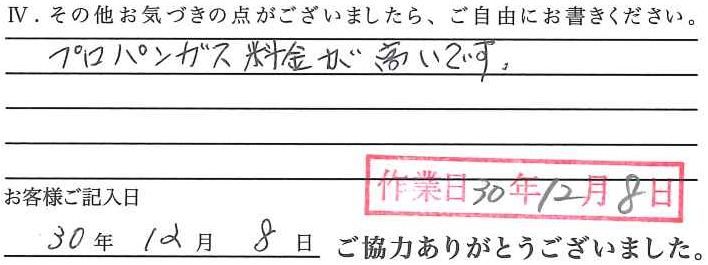 Ⅳ．その他お気づきの点がございましたら、ご自由にお書きください。
プロパンガス料金が高いです。
作業日30年12月8日
お客様ご記入日
30年 12月 8日 ご協力ありがとうございました。